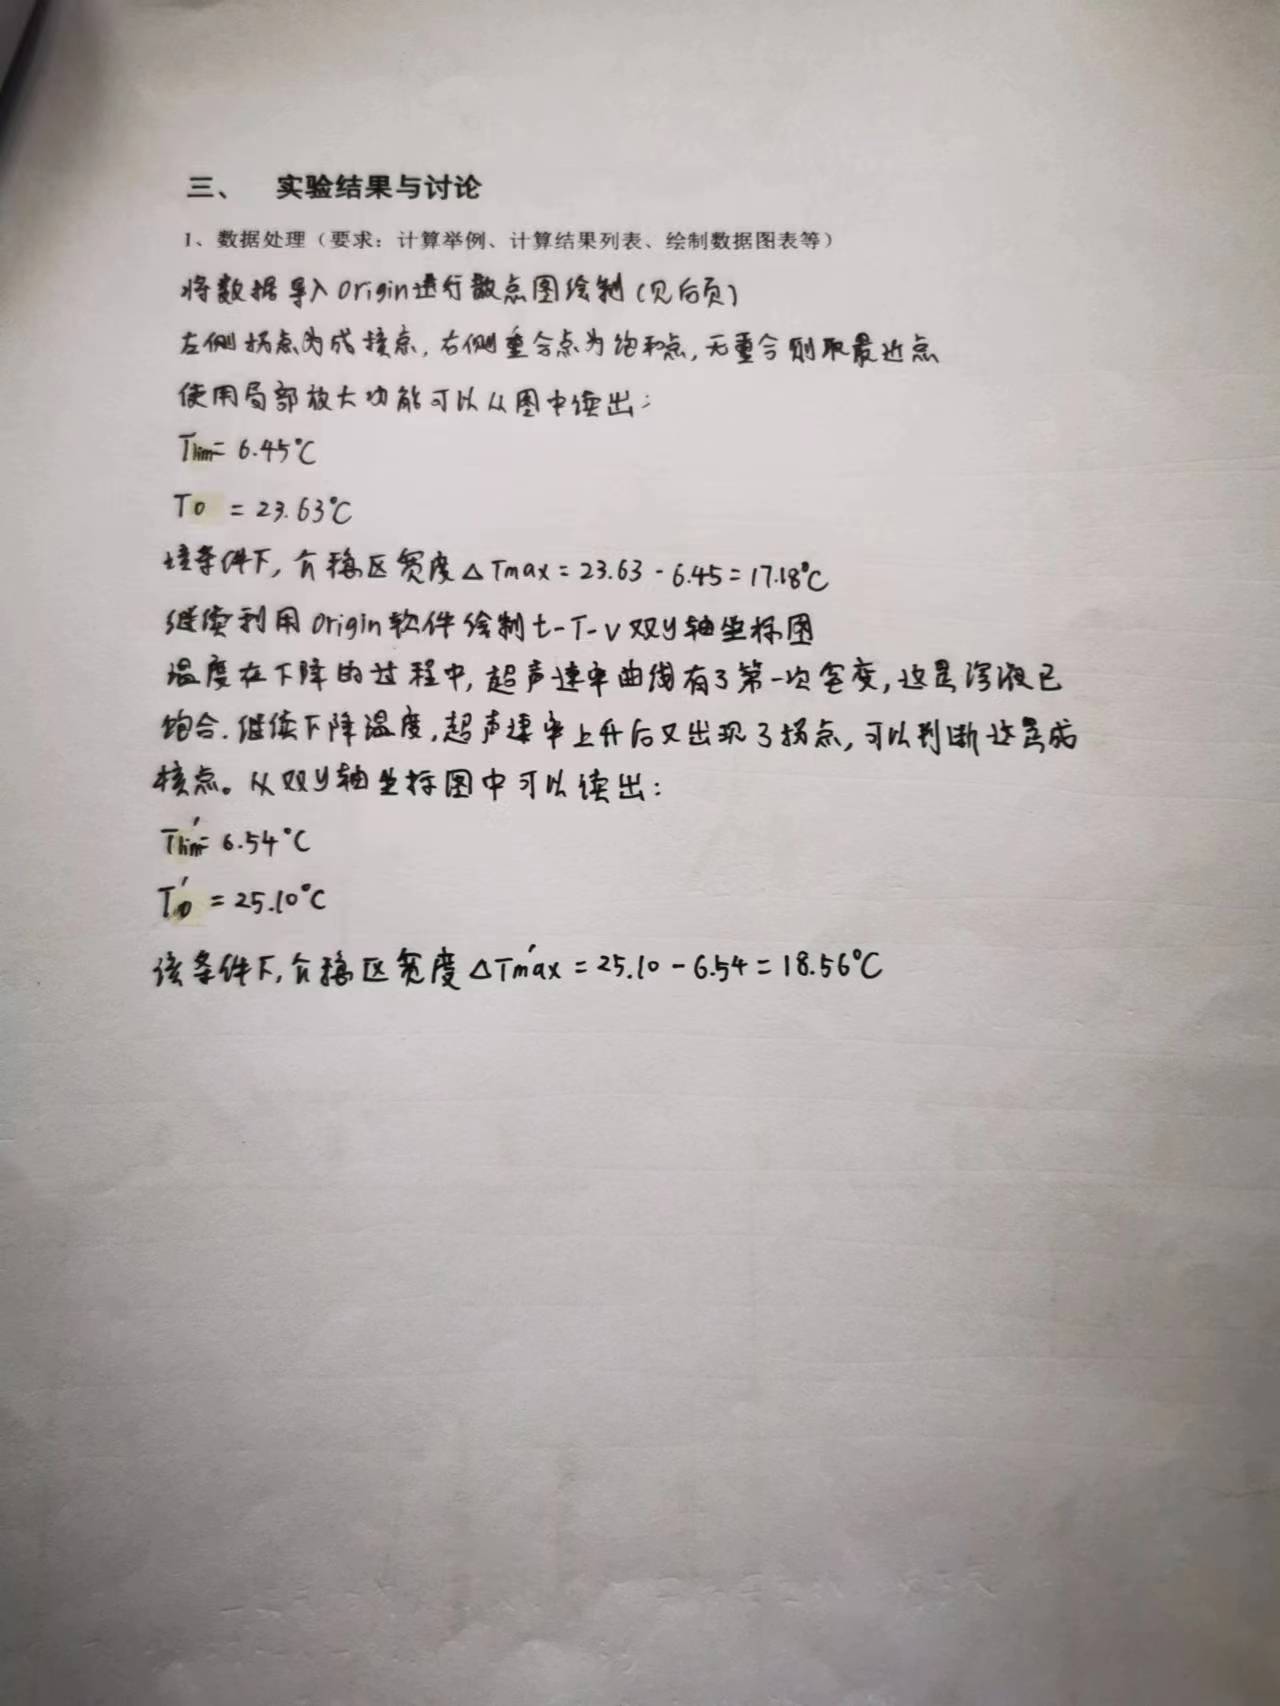 三、 实验结果与讨论
1、数据处理（要求：计算举例、计算结果列表、绘制数据图表等）
将数据导入Origin进行散点图绘制（见后页）
左侧拐点为成核点，右侧重合点为饱和点，无重合则取最近点
使用局部放大功能可以从图中读出：
Tlim= 6.45℃
T0 = 23.63℃
该条件下，介稳区宽度△Tmax = 23.63 - 6.45 = 17.18℃
继续利用Origin软件绘制t-T-v双y轴坐标图
温度在下降的过程中，超声速率曲线有了第一次突变，这是溶液已
饱合．继续下降温度，超声速率上升后又出现了拐点，可以判断这是成
核点。从双y轴坐标图中可以读出：
Tlim'= 6.54℃
T0' = 25.10℃
该条件下，介稳区宽度△Tmax' = 25.10 - 6.54 = 18.56℃